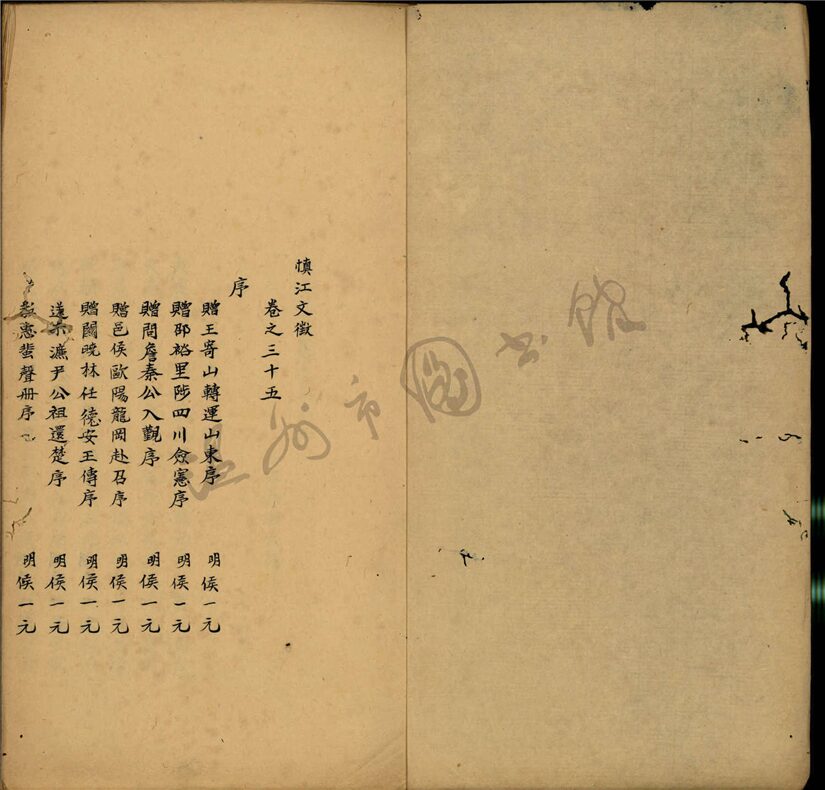 慎江文徵
卷之三十五
序
贈王寄山轉運山東序 明 侯一元
贈邵裕里陟四川僉憲序 明 侯一元
贈問詹秦公入覲序 明 侯一元
贈邑侯歐陽龍岡赴召序 明 侯一元
贈闗晚林任德安王傅序 明 侯一元
送 濂尹公祖還楚序 明 侯一元
惠蜚聲册序 明 侯一元
温州市圖書館